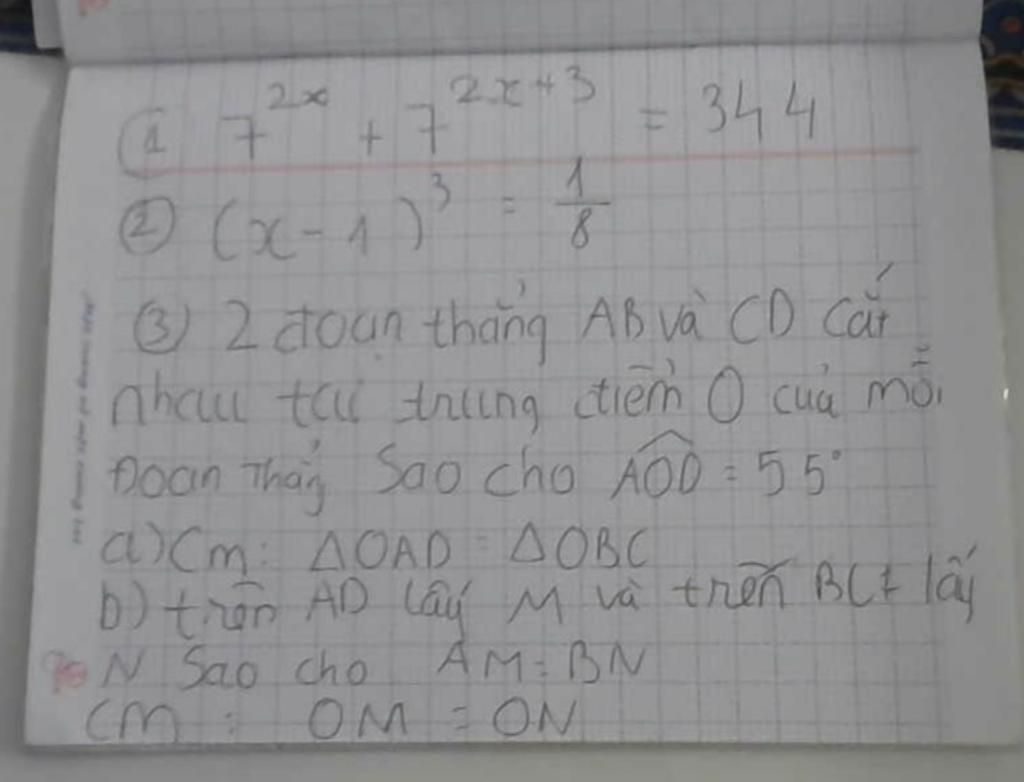 ① 7^{2x} + 7^{2x+3} = 344
② (x-1)^3 = 1/8
③ 2 đoạn thẳng AB và CD Cắt
nhau tại trung điểm O của mỗi
Đoạn Thẳng Sao cho \widehat{AOD} = 55°
a) Cm: ΔOAD = ΔOBC
b) trên AD lấy M và trên BC lấy
N Sao cho AM = BN
CM: OM = ON